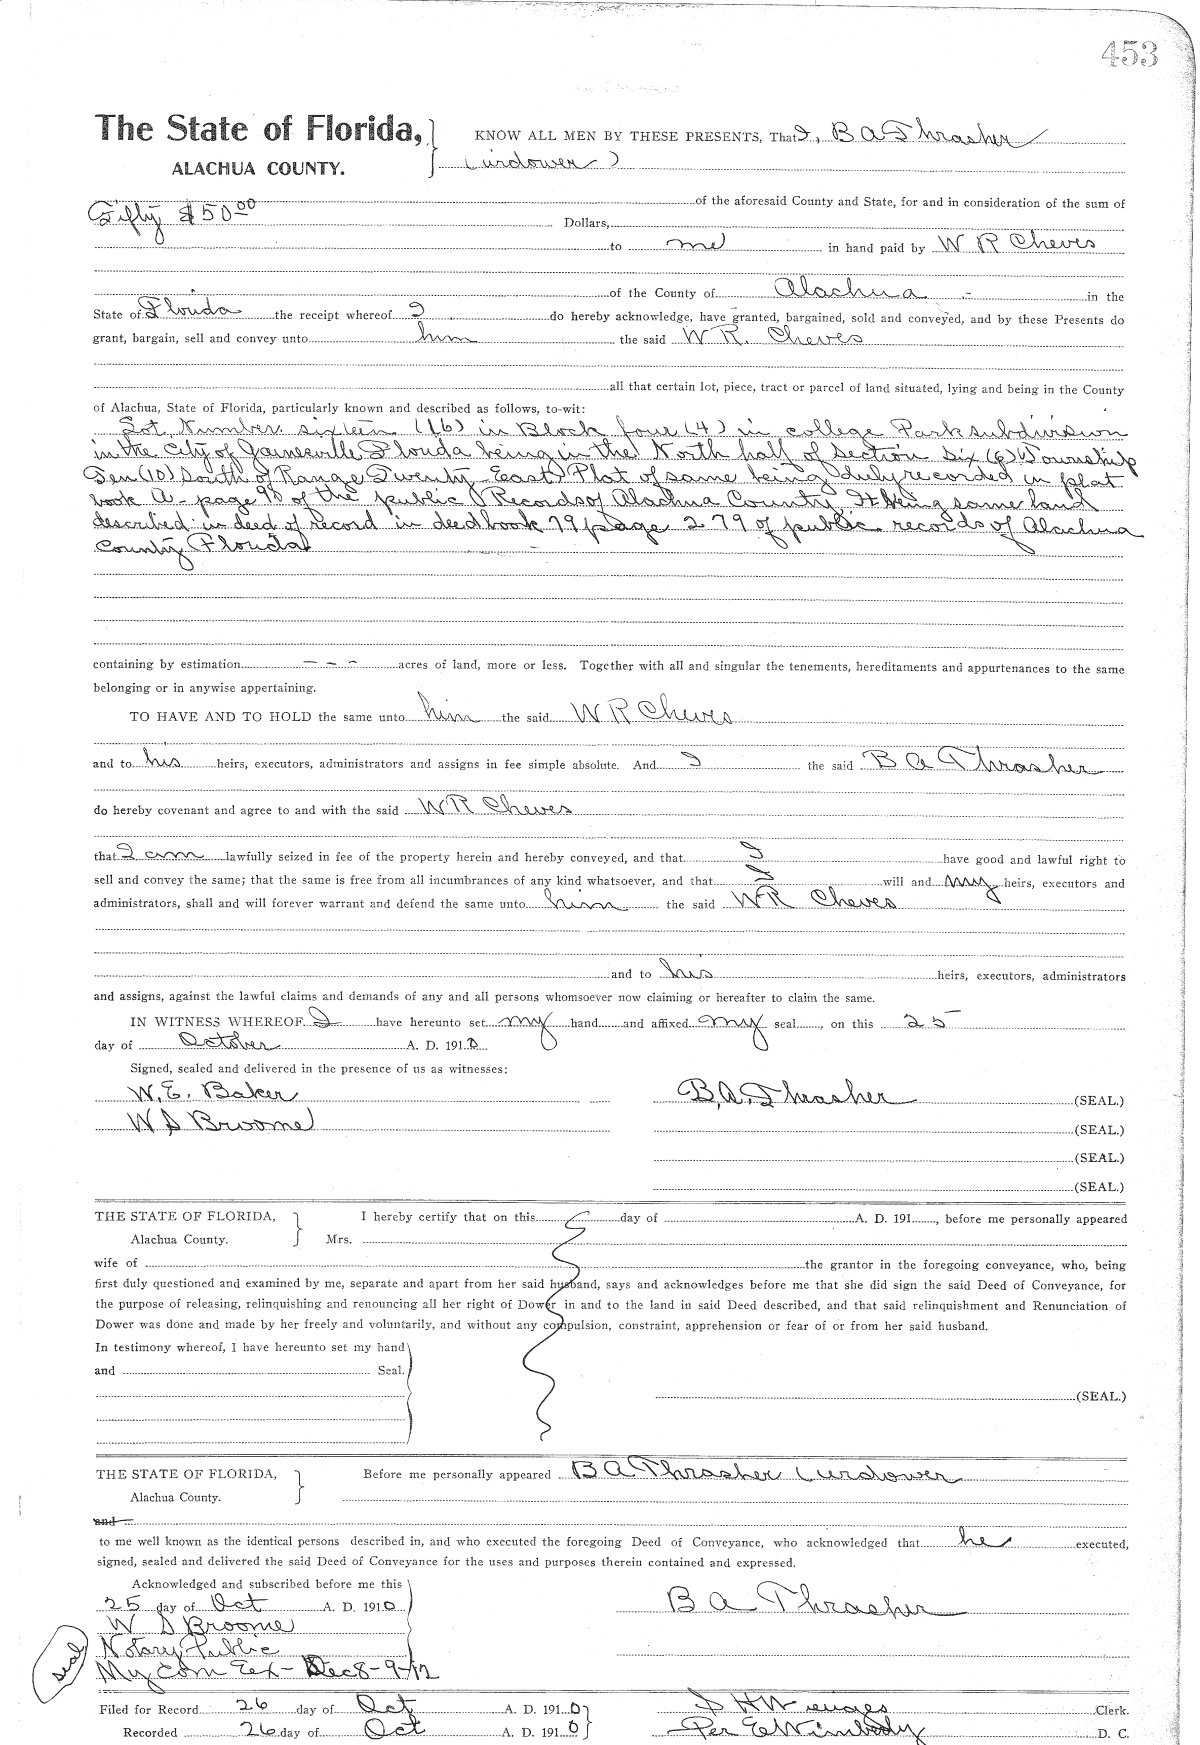 453
The State of Florida, KNOW ALL MEN BY THESE PRESENTS, That I, B A Thrasher
ALACHUA COUNTY. (widower)
of the aforesaid County and State, for and in consideration of the sum of
Fifty $50.00 Dollars,
to me in hand paid by W R Cheves
of the County of Alachua in the
State of Florida the receipt whereof I do hereby acknowledge, have granted, bargained, sold and conveyed, and by these Presents do
grant, bargain, sell and convey unto him the said W R. Cheves
all that certain lot, piece, tract or parcel of land situated, lying and being in the County
of Alachua, State of Florida, particularly known and described as follows, to-wit:
Lot Number sixteen (16) in Block four (4) in college Park subdivision
in the City of Gainesville Florida being in the North half of section six (6) Township
Ten (10) South of Range Twenty East Plat of same being duly recorded in plat
book A - page of the public Records of Alachua County, It being same land
described in deed of record in deed book 79 page 279 of public records of Alachua
County Florida
containing by estimation - - - acres of land, more or less. Together with all and singular the tenements, hereditaments and appurtenances to the same
belonging or in anywise appertaining.
TO HAVE AND TO HOLD the same unto him the said W R Cheves
and to his heirs, executors, administrators and assigns in fee simple absolute. And I the said B A Thrasher
do hereby covenant and agree to and with the said W R Cheves
that I am lawfully seized in fee of the property herein and hereby conveyed, and that I have good and lawful right to
sell and convey the same; that the same is free from all incumbrances of any kind whatsoever, and that I will and my heirs, executors and
administrators, shall and will forever warrant and defend the same unto him the said W R Cheves
and to his heirs, executors, administrators
and assigns, against the lawful claims and demands of any and all persons whomsoever now claiming or hereafter to claim the same.
IN WITNESS WHEREOF I have hereunto set my hand and affixed my seal, on this 25
day of October A. D. 1910
Signed, sealed and delivered in the presence of us as witnesses:
W. E. Baker B. A. Thrasher (SEAL.)
W S Broome (SEAL.)
(SEAL.)
(SEAL.)
THE STATE OF FLORIDA, I hereby certify that on this day of A. D. 191, before me personally appeared
Alachua County. Mrs.
wife of the grantor in the foregoing conveyance, who, being
first duly questioned and examined by me, separate and apart from her said husband, says and acknowledges before me that she did sign the said Deed of Conveyance, for
the purpose of releasing, relinquishing and renouncing all her right of Dower in and to the land in said Deed described, and that said relinquishment and Renunciation of
Dower was done and made by her freely and voluntarily, and without any compulsion, constraint, apprehension or fear of or from her said husband.
In testimony whereof, I have hereunto set my hand
and Seal.
(SEAL.)
THE STATE OF FLORIDA, Before me personally appeared B A Thrasher (widower
Alachua County.
and
to me well known as the identical persons described in, and who executed the foregoing Deed of Conveyance, who acknowledged that he executed,
signed, sealed and delivered the said Deed of Conveyance for the uses and purposes therein contained and expressed.
Acknowledged and subscribed before me this
25 day of Oct A. D. 1910 B A Thrasher
W S Broome
Notary Public
seal
My Com Ex - Dec 8-9-12
Filed for Record 26 day of Oct A. D. 1910 S H Wienges Clerk.
Recorded 26 day of Oct A. D. 1910 Per E Wimberly D. C.